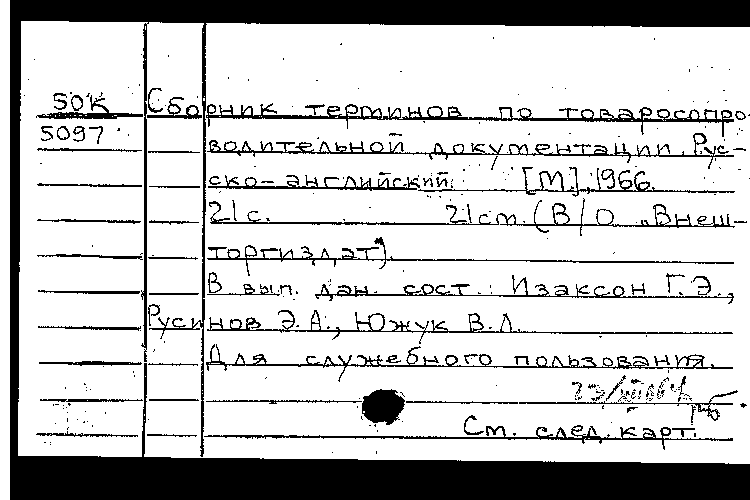 50К Сборник терминов по товаросопро-
5097 водительной документации. Рус-
ско-английский. [М.], 1966.
21с. 21см. (В/О „Внеш-
торгиздат").
В вып. дан. сост.: Изаксон Г.Э.,
Русинов Э.А., Южук В.Л.
Для служебного пользования.
См. след. карт.